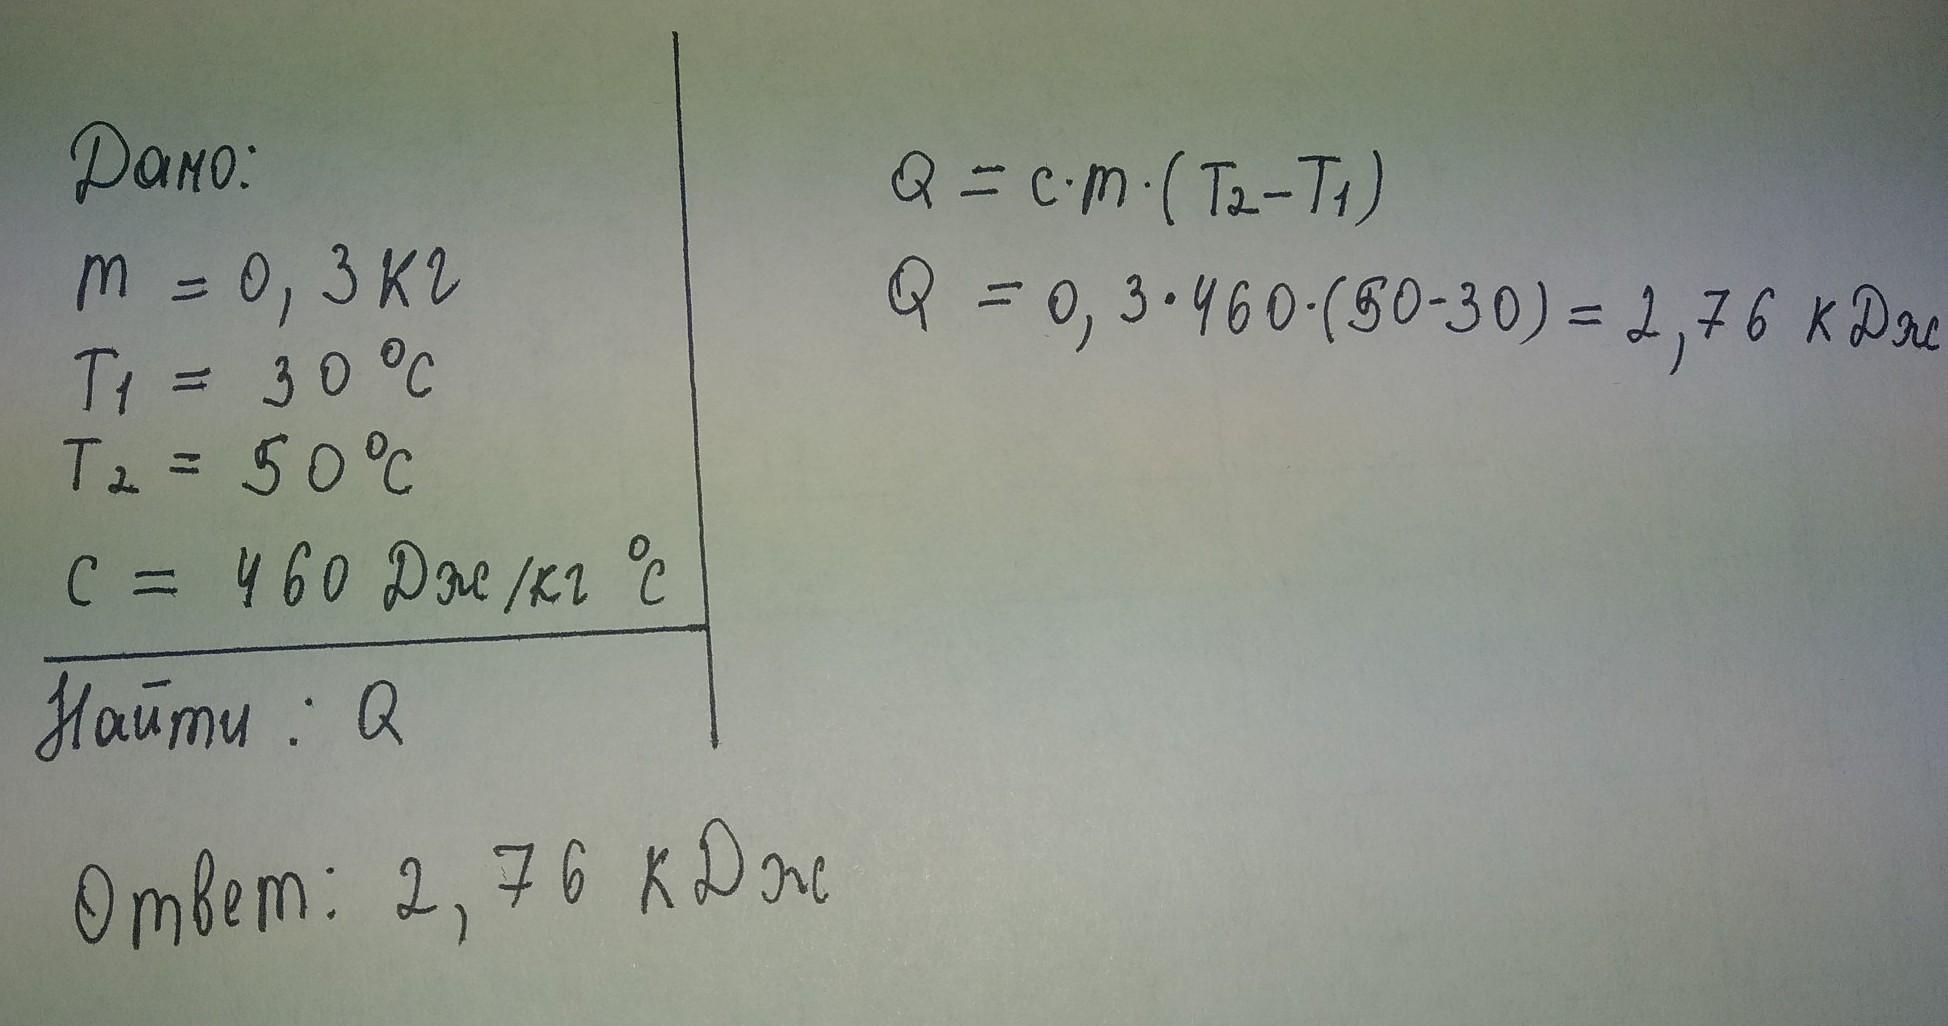 Дано:
m = 0,3 кг
T1 = 30 °C
T2 = 50 °C
c = 460 Дж/кг °C
Найти : Q
Q = c·m·(T2-T1)
Q = 0,3·460·(50-30) = 2,76 кДж
Ответ: 2,76 кДж